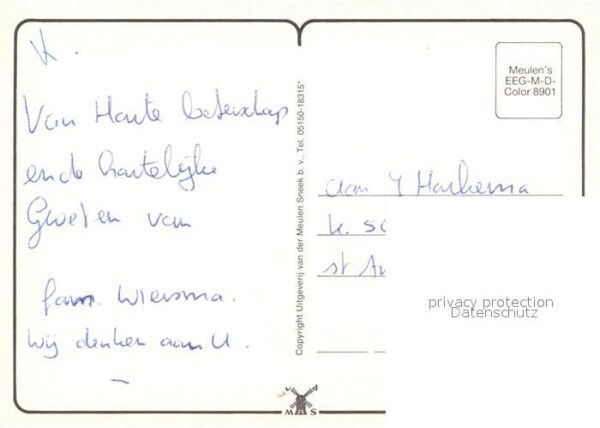 K.
Van Harte beterschap
en de hartelijke
Groeten van
fam. Wiersma.
Wij denken aan U.
Copyright Uitgeverij van der Meulen Sneek b. v., Tel. 05150-18315*
Meulen's
EEG-M-D-
Color 8901
aan Y Harkema
k. sc
st An
privacy protection
Datenschutz
v d
M S